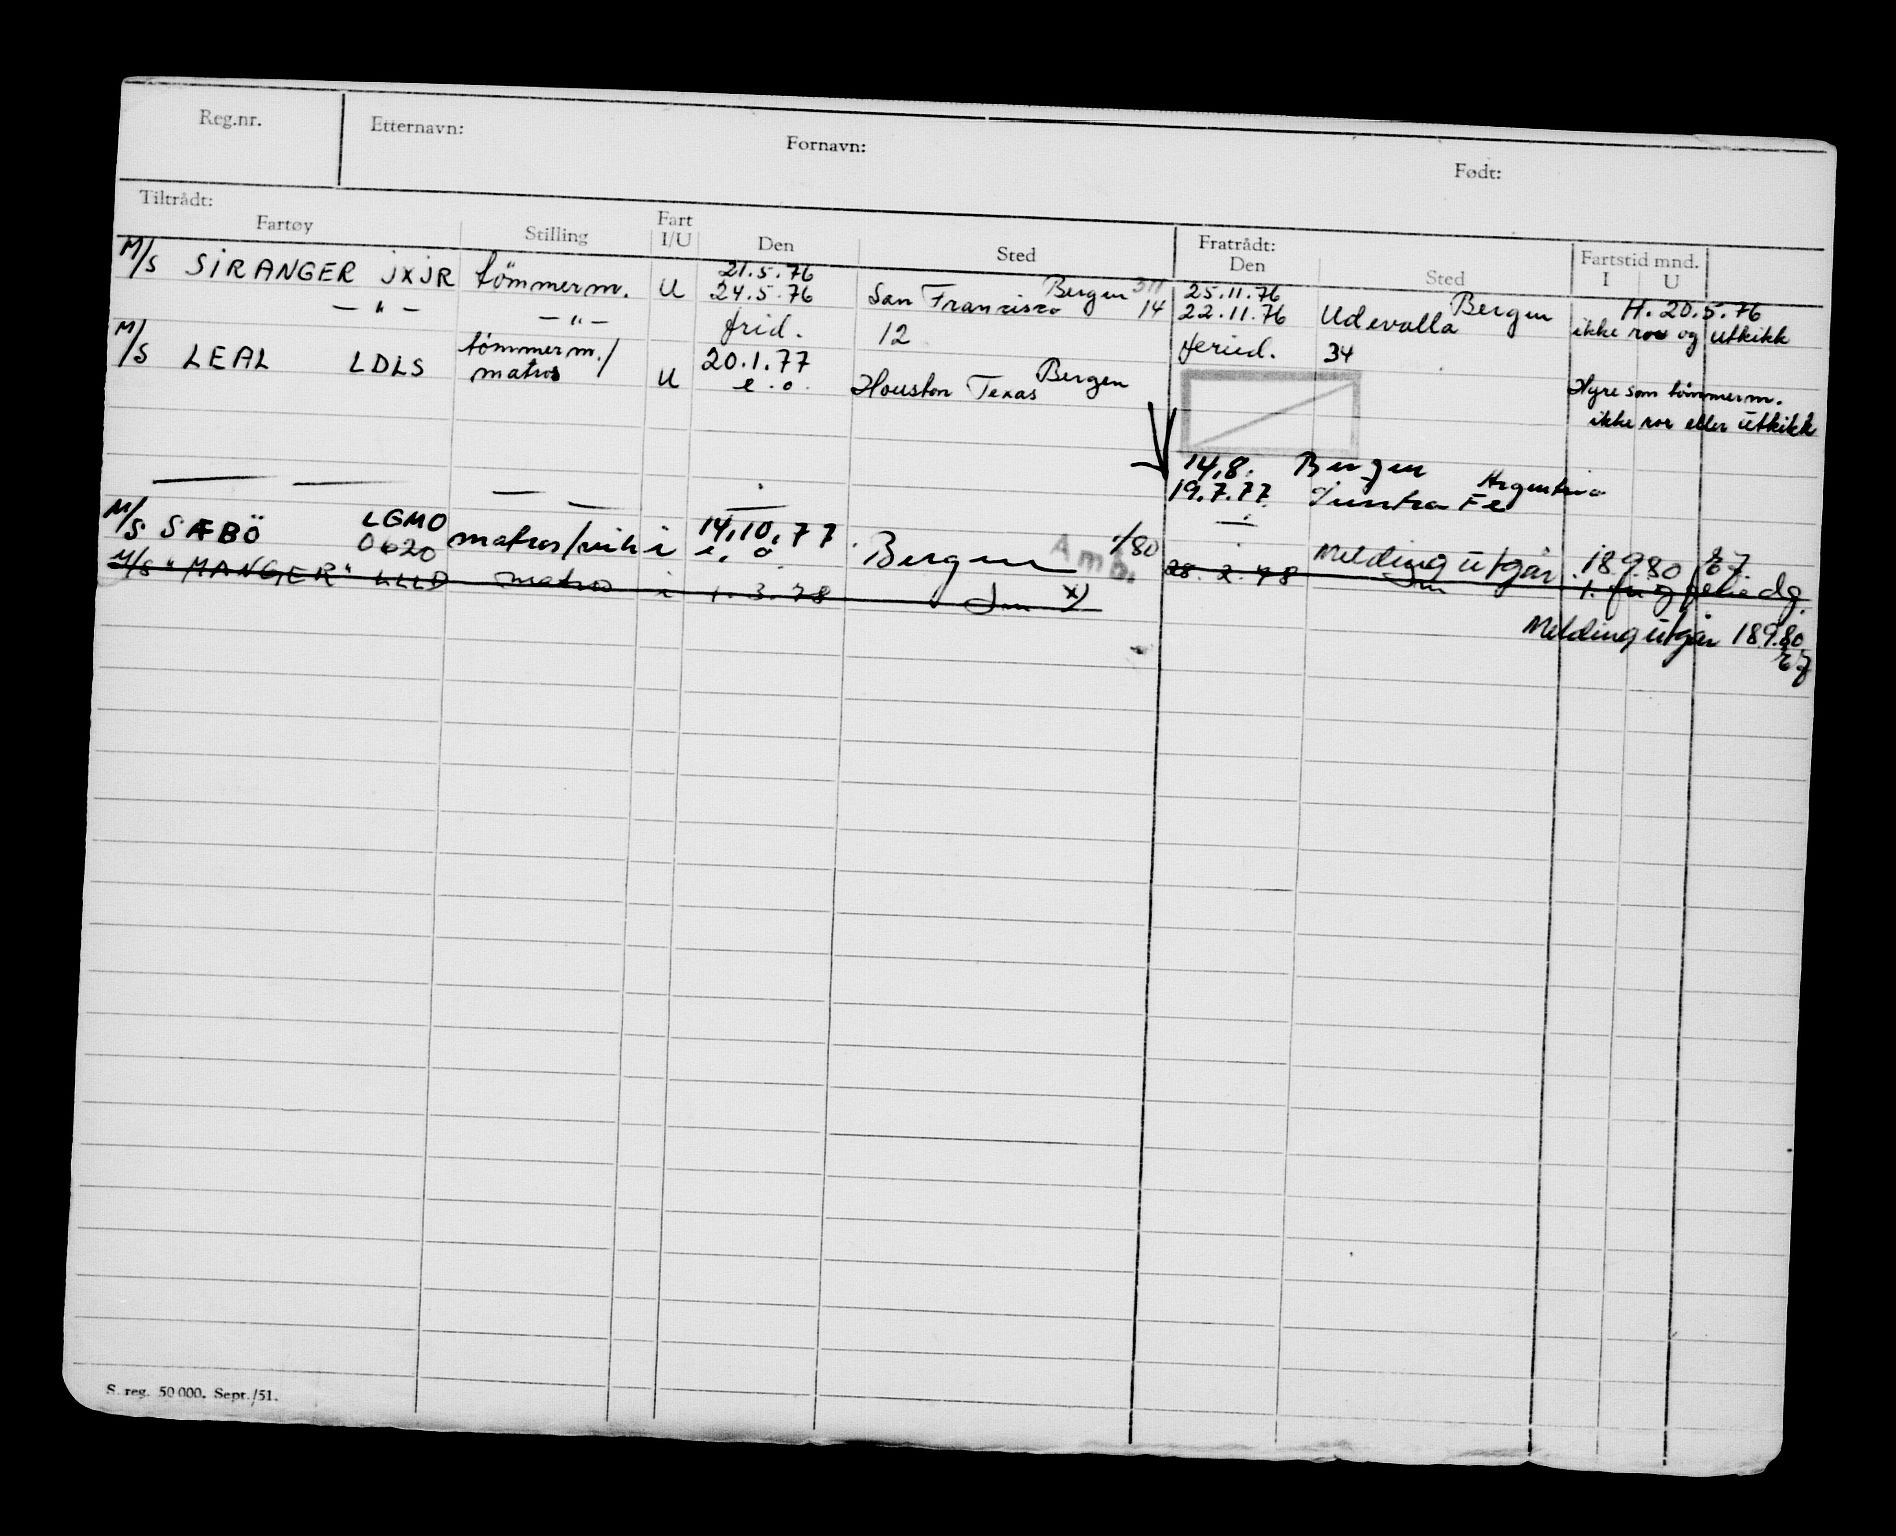 Reg.nr. Etternavn: Fornavn: Født:
Tiltrådt: Fratrådt:
Fartøy Stilling Fart I/U Den Sted Den Sted Fartstid mnd. I U
M/S SIRANGER JXJR tömmerm. U 21.5.76 Bergen 25.11.76 Bergen H. 20.5.76
— " — — " — 24.5.76 San Francisco 14 22.11.76 Udevalla ikke ror og utkikk
frid. 12 feried. 34
M/S LEAL LDLS tömmerm./ matros U 20.1.77 Bergen
e.o. Houston Texas
Hyre som tömmerm.
ikke ror eller utkikk
14.8. Bergen
19.7.77 Fe Argentina
M/S SÆBÖ LGMO matros/ i 14.10.77 Bergen 1/80 Melding utgår 18.9.80 EJ
0620 e. o. Amb.
M/S "MANGER" LLLD matros i 1.3.78 x) 28.2.78
Melding utgår 18.9.80
EJ
S. reg. 50 000. Sept./51.